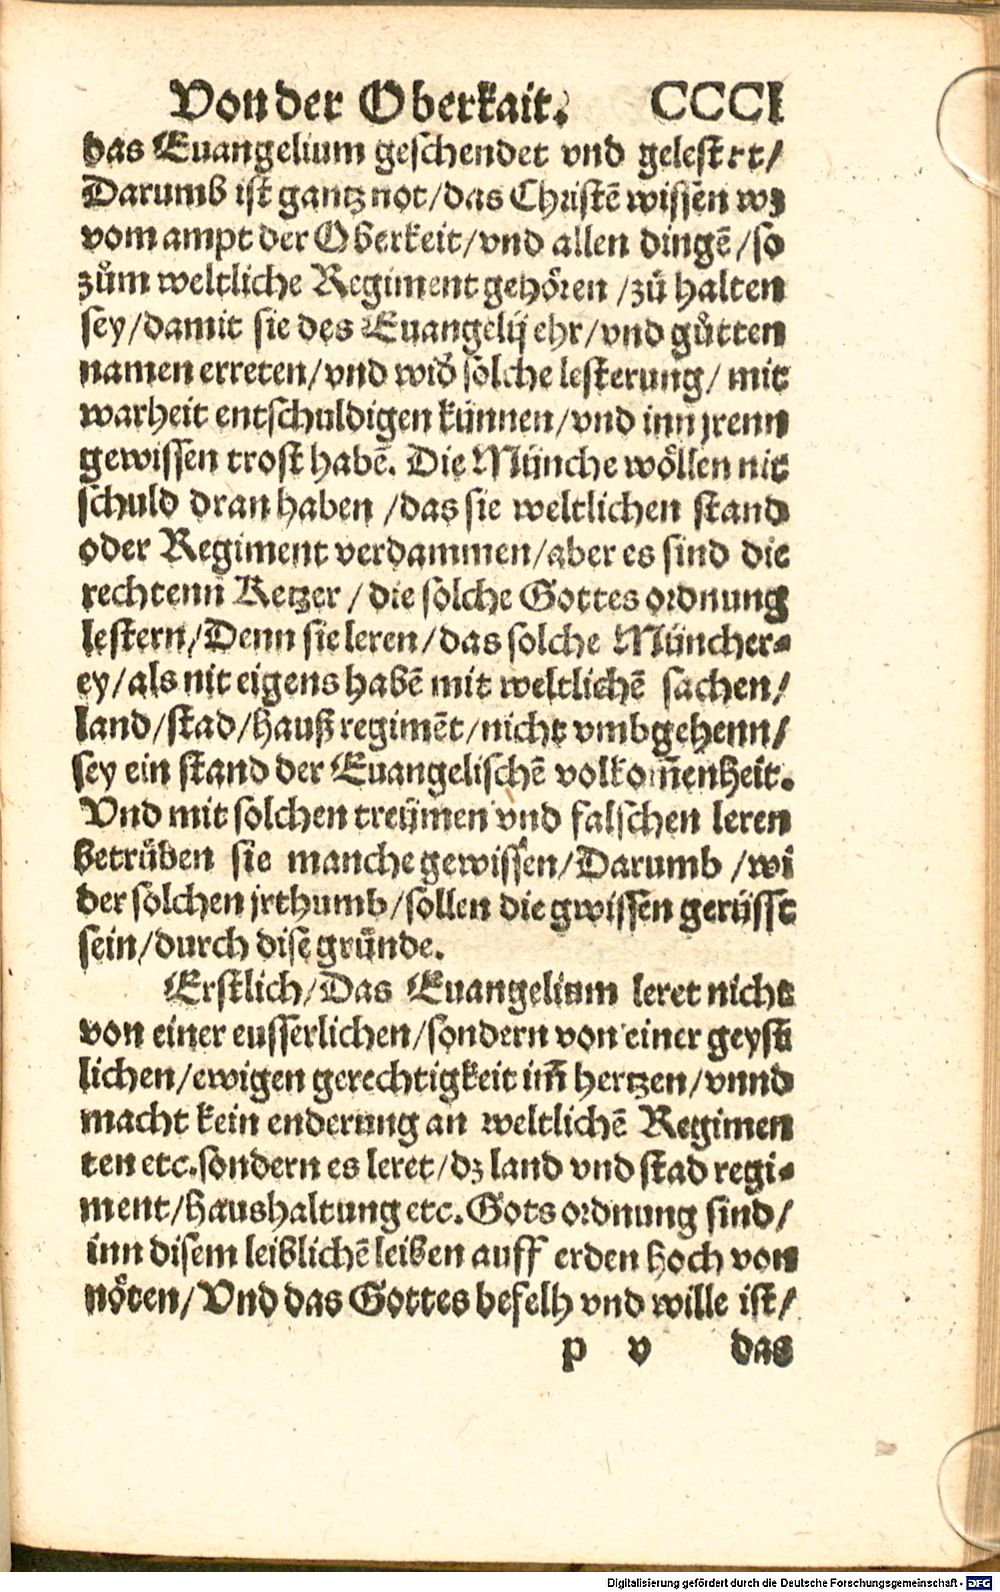 Von der Oberkait. CCCI
das Euangelium geschendet vnd gelestert/
Darumb ist gantz not/das Christē wissen wz
vom ampt der Oberkeit/vnd allen dingē/so
zům weltliche Regiment gehören/zů halten
sey/damit sie des Euangelij ehr/vnd gůtten
namen erreten/vnd wid̕ solche lesterung/mit
warheit entschuldigen künnen/vnd inn jrenn
gewissen trost habē. Die Münche wöllen nit
schuld dran haben/das sie weltlichen stand
oder Regiment verdammen/aber es sind die
rechtenn Ketzer/die solche Gottes ordnung
lestern/Denn sie leren/das solche Müncher-
ey/als nit eigens habē mit weltlichē sachen/
land/stad/hauß regimēt/nicht vmbgehenn/
sey ein stand der Euangelischē volkom̄enheit.
Vnd mit solchen treümen vnd falschen leren
betrüben sie manche gewissen/Darumb/wi
der solchen jrthumb/sollen die gwissen gerüsst
sein/durch dise gründe.
Erstlich/Das Euangelium leret nicht
von einer eusserlichen/sondern von einer geyst
lichen/ewigen gerechtigkeit im̄ hertzen/vnnd
macht kein enderung an weltlichē Regimen
ten etc.sondern es leret/dz land vnd stad regi-
ment/haushaltung etc.Gots ordnung sind/
inn disem leiblichē leiben auff erden hoch von
nöten/Vnd das Gottes befelh vnd wille ist/
p v das
Digitalisierung gefördert durch die Deutsche Forschungsgemeinschaft - DFG